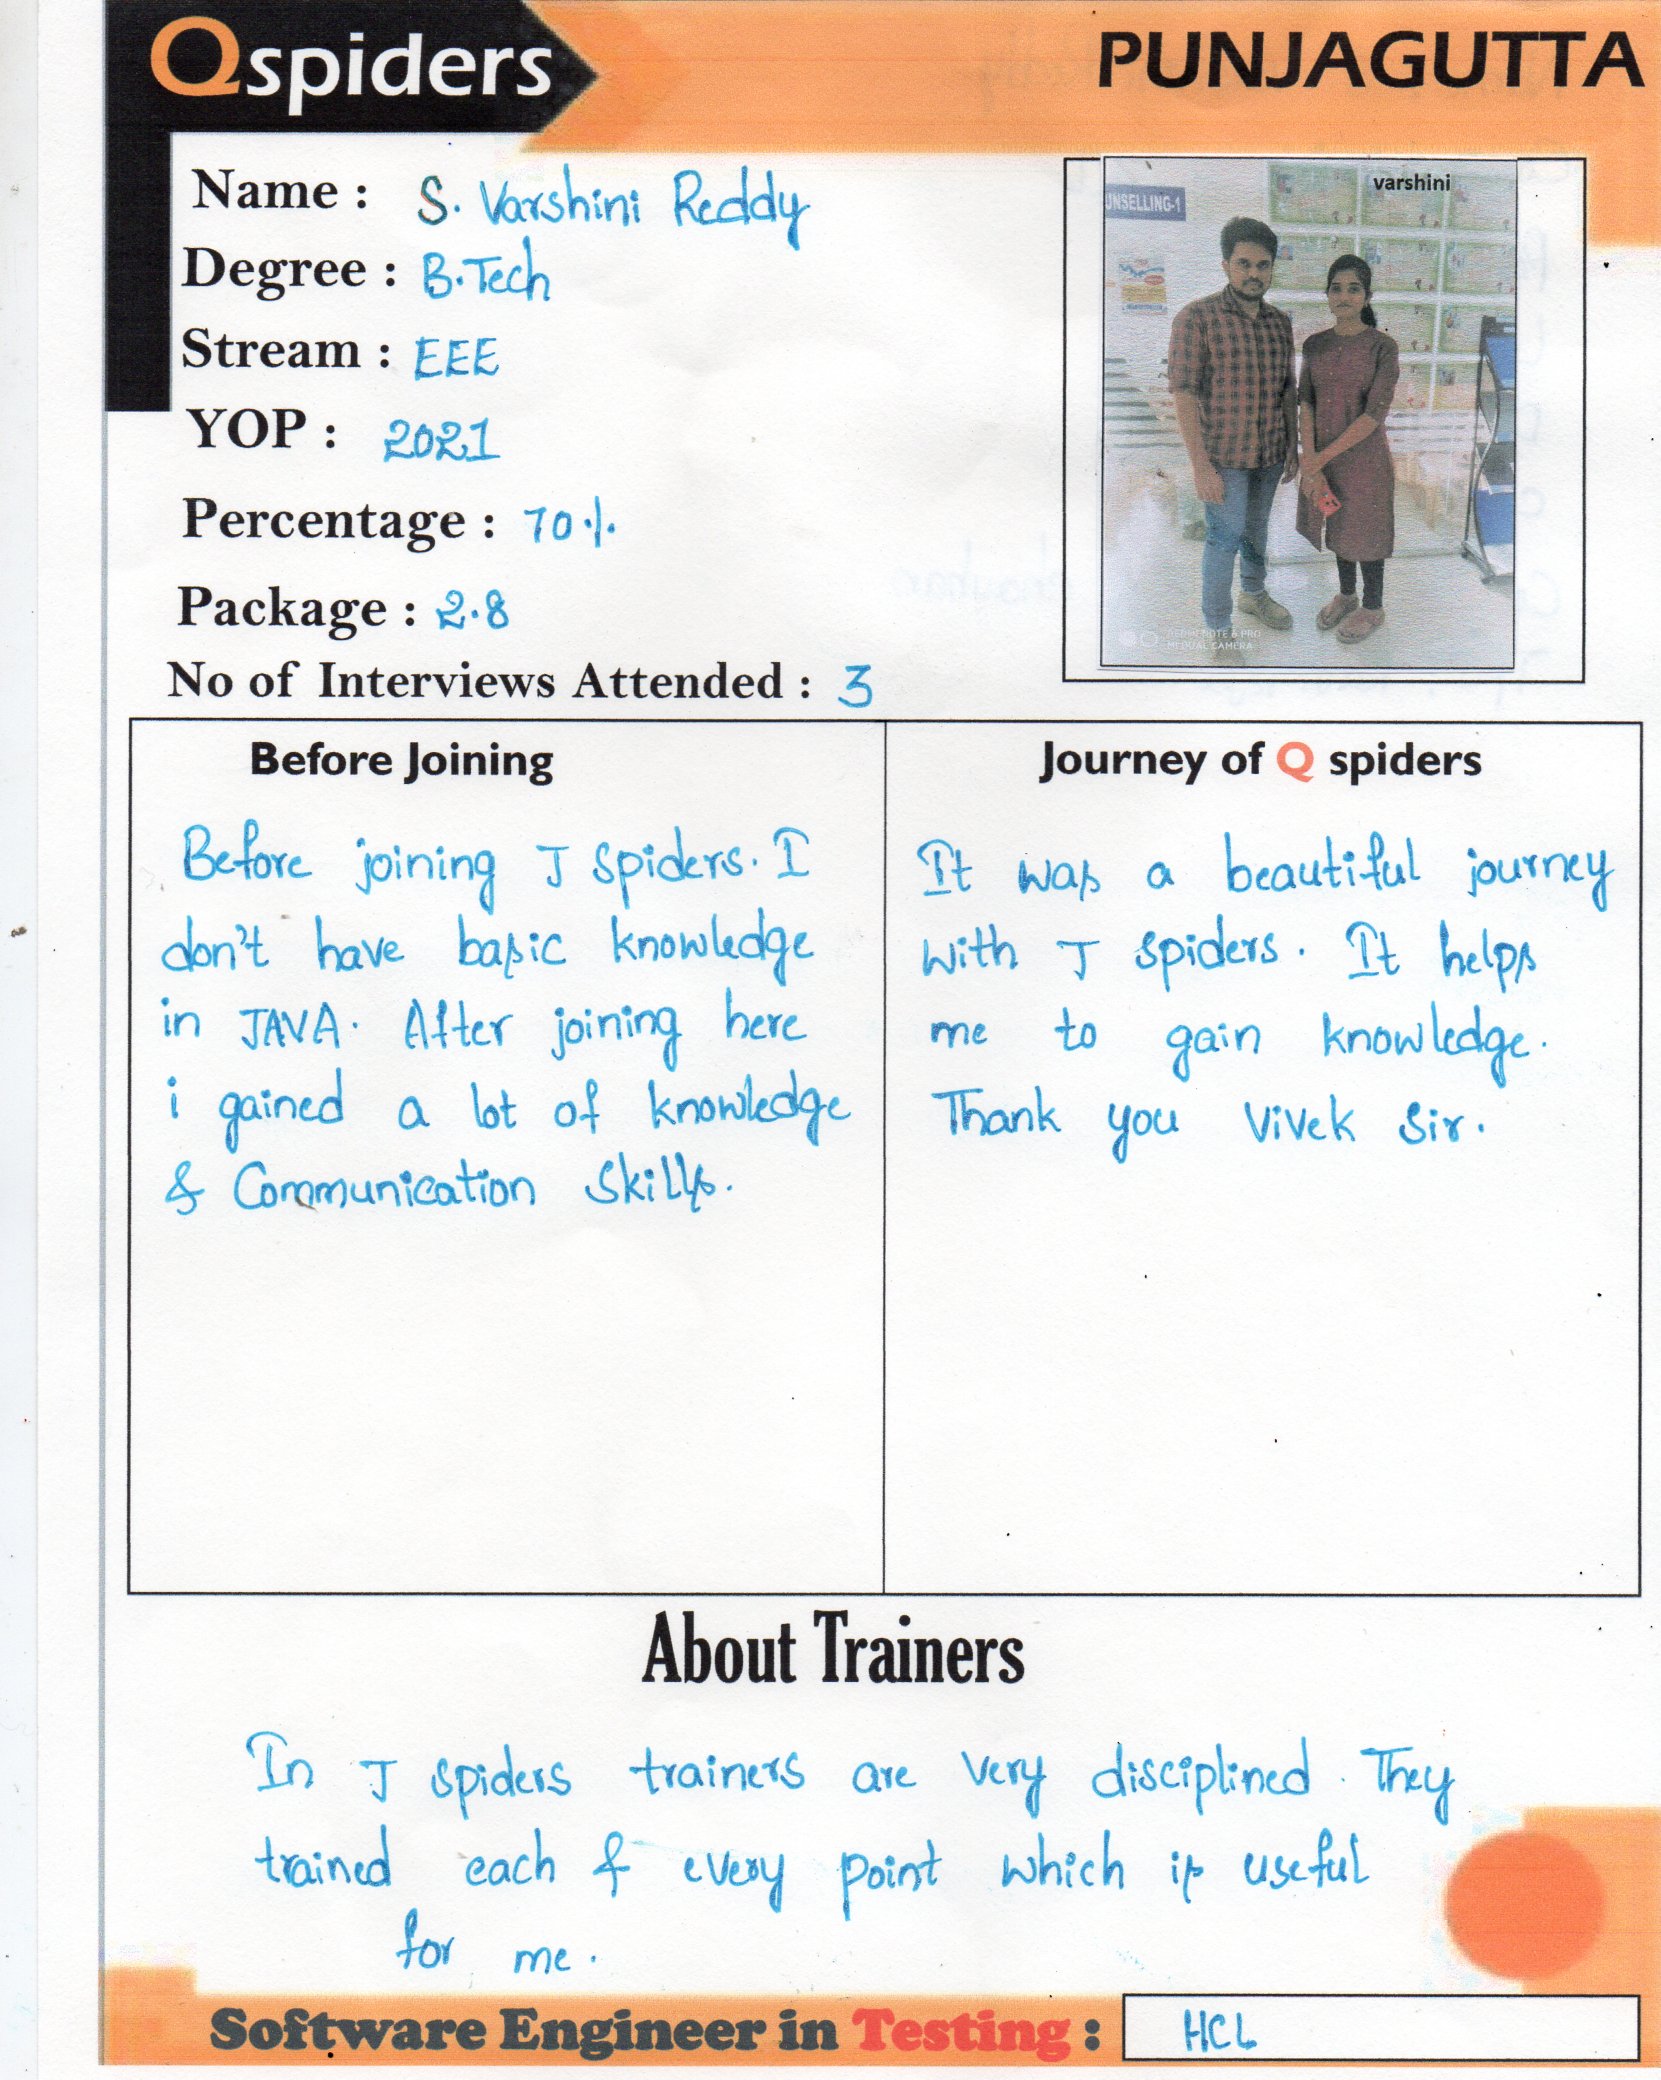 Qspiders
PUNJAGUTTA
Name : S. Varshini Reddy
Degree : B.Tech
Stream : EEE
YOP : 2021
Percentage : 70%
Package : 2.8
No of Interviews Attended : 3
varshini
UNSELLING-1
REDMI NOTE 6 PRO
MI DUAL CAMERA
Before Joining
Before joining J spiders. I
don't have basic knowledge
in JAVA. After joining here
i gained a lot of knowledge
& Communication skills.
Journey of Q spiders
It was a beautiful journey
with J spiders. It helps
me to gain knowledge.
Thank you Vivek sir.
About Trainers
In J spiders trainers are very disciplined. They
trained each & every point which is useful
for me.
Software Engineer in Testing : HCL